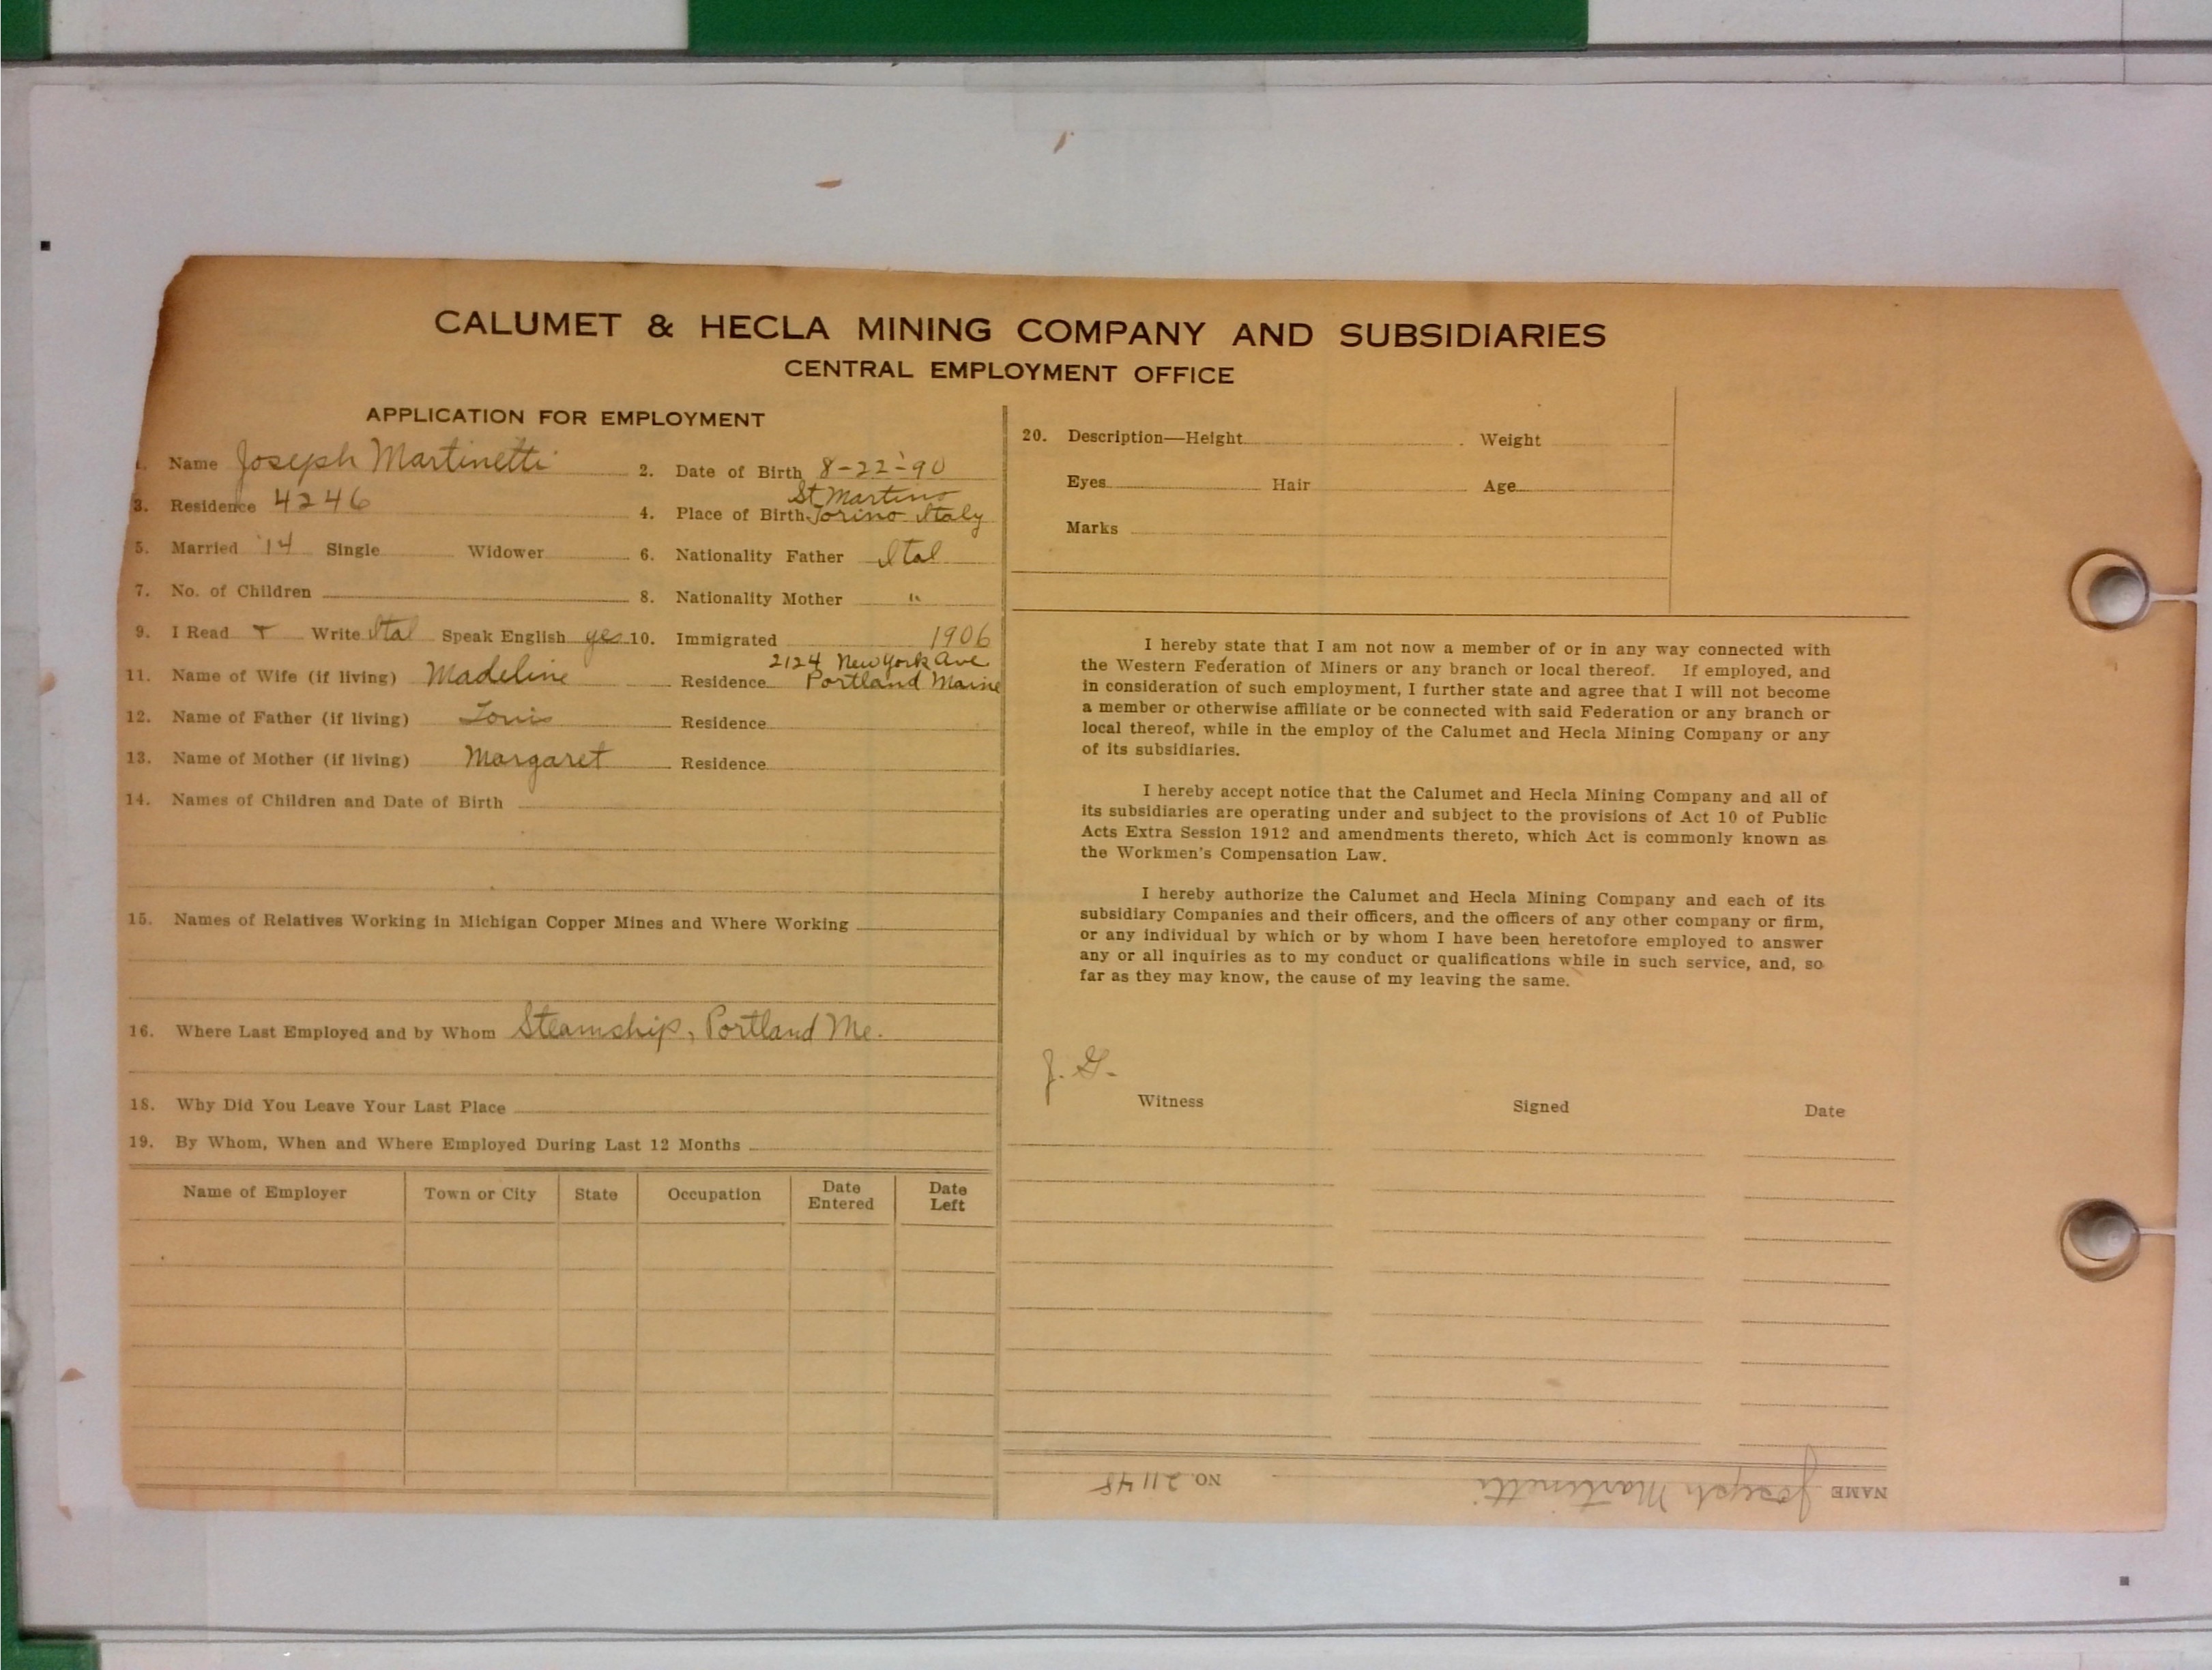 CALUMET & HECLA MINING COMPANY AND SUBSIDIARIES
CENTRAL EMPLOYMENT OFFICE
APPLICATION FOR EMPLOYMENT
1. Name Joseph Martinetti 2. Date of Birth 8-22-'90
3. Residence 4246 4. Place of Birth St Martino Torino Italy
5. Married '14 Single Widower 6. Nationality Father Ital
7. No. of Children 8. Nationality Mother "
9. I Read + Write Ital Speak English yes 10. Immigrated 1906
11. Name of Wife (if living) Madeline Residence 2124 New York Ave Portland Maine
12. Name of Father (if living) Louis Residence
13. Name of Mother (if living) Margaret Residence
14. Names of Children and Date of Birth
15. Names of Relatives Working in Michigan Copper Mines and Where Working
16. Where Last Employed and by Whom Steamship, Portland Me.
18. Why Did You Leave Your Last Place
19. By Whom, When and Where Employed During Last 12 Months
Name of Employer Town or City State Occupation Date Entered Date Left
20. Description—Height Weight
Eyes Hair Age
Marks
I hereby state that I am not now a member of or in any way connected with
the Western Federation of Miners or any branch or local thereof. If employed, and
in consideration of such employment, I further state and agree that I will not become
a member or otherwise affiliate or be connected with said Federation or any branch or
local thereof, while in the employ of the Calumet and Hecla Mining Company or any
of its subsidiaries.
I hereby accept notice that the Calumet and Hecla Mining Company and all of
its subsidiaries are operating under and subject to the provisions of Act 10 of Public
Acts Extra Session 1912 and amendments thereto, which Act is commonly known as
the Workmen's Compensation Law.
I hereby authorize the Calumet and Hecla Mining Company and each of its
subsidiary Companies and their officers, and the officers of any other company or firm,
or any individual by which or by whom I have been heretofore employed to answer
any or all inquiries as to my conduct or qualifications while in such service, and, so
far as they may know, the cause of my leaving the same.
J. G.
Witness Signed Date
NAME Joseph Martinetti NO. 21148